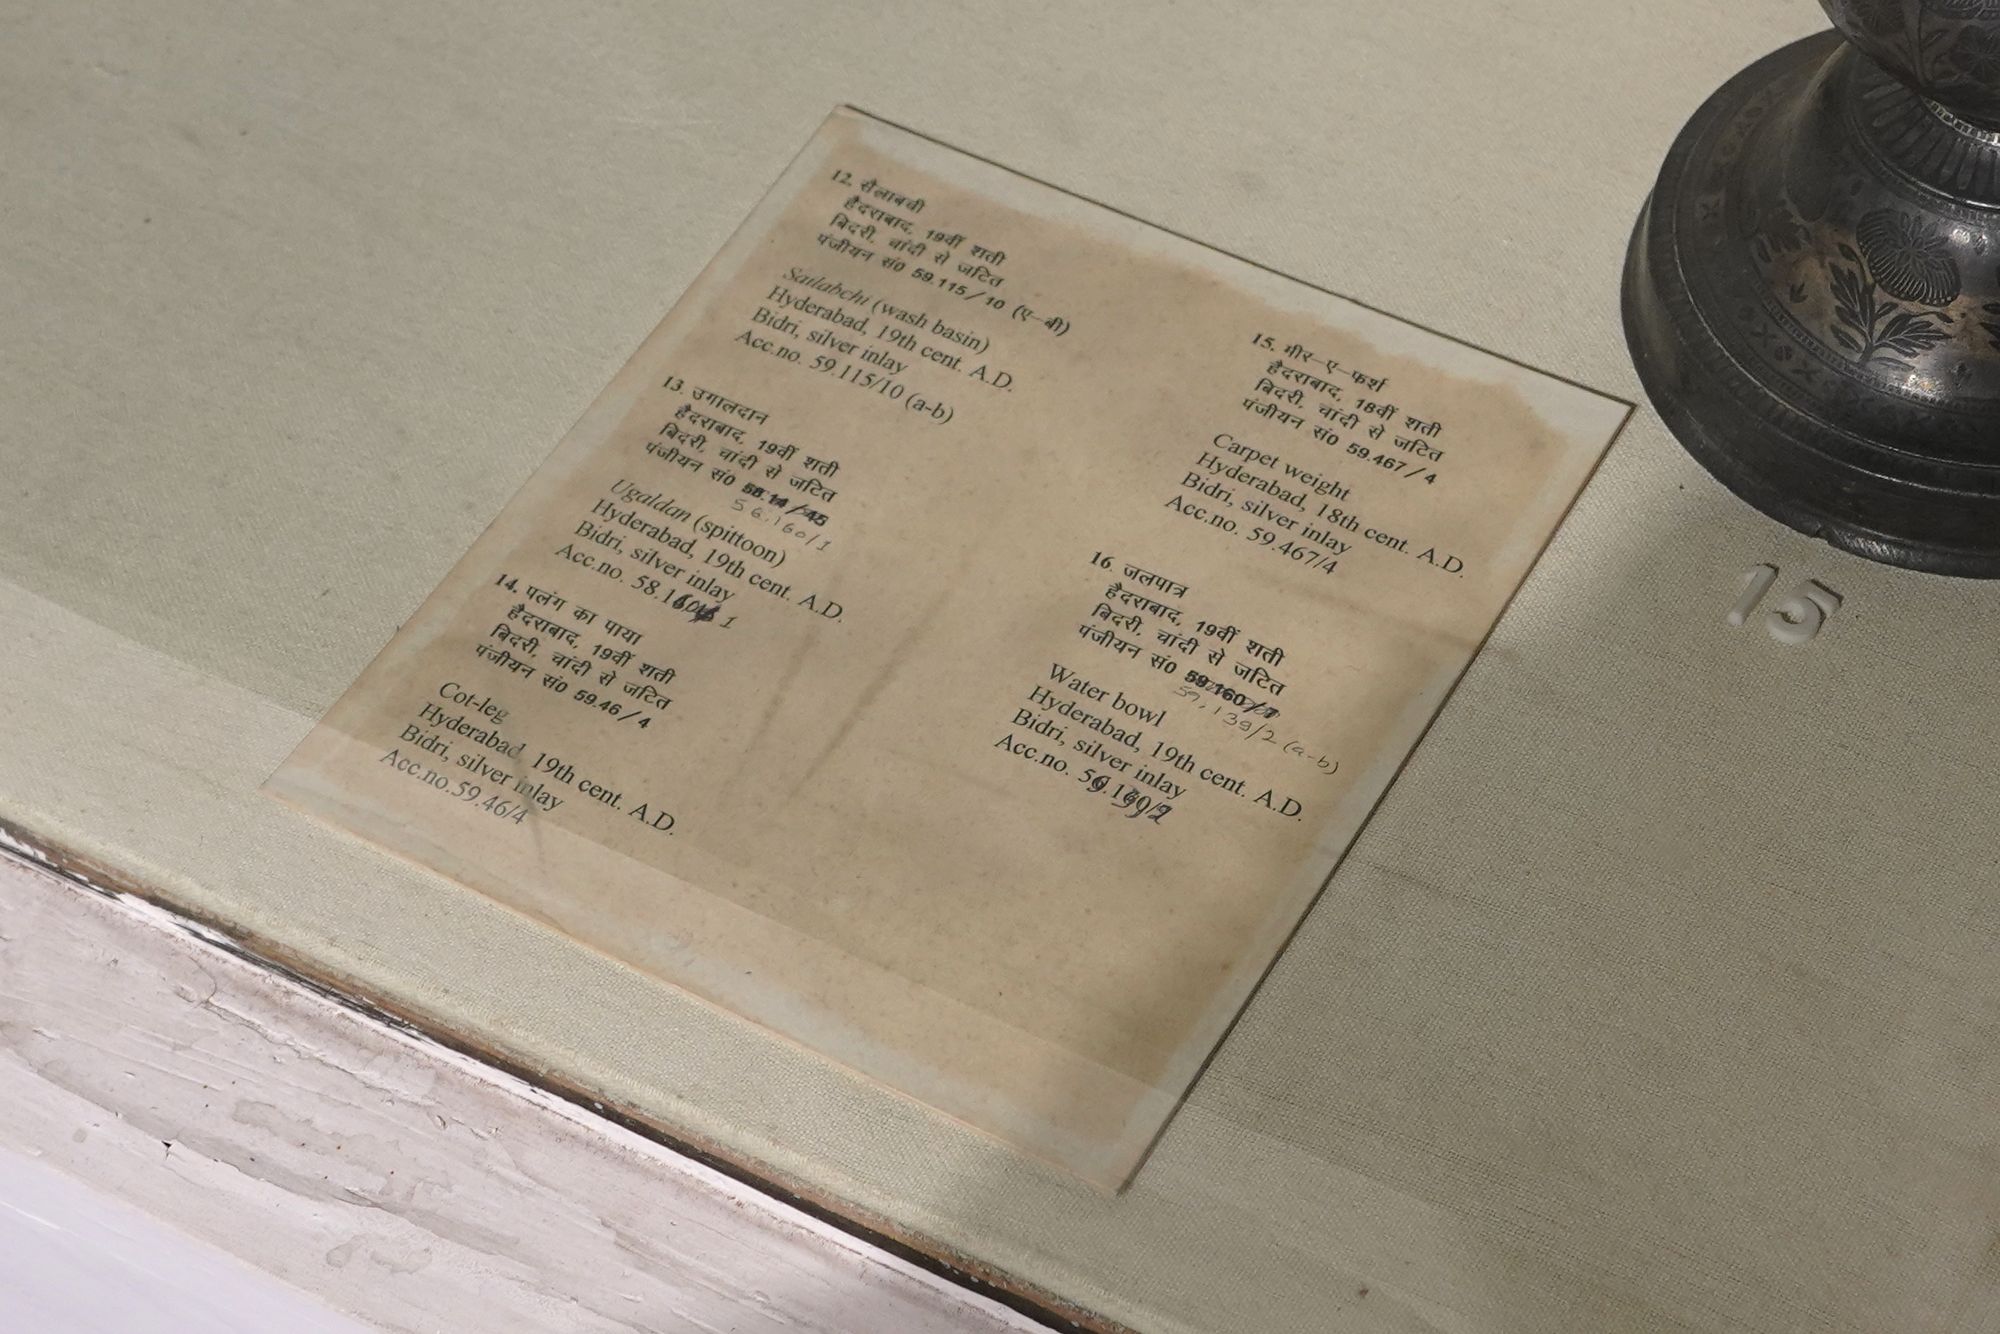 12. सैलाबची
हैदराबाद, 19वीं शती
बिदरी, चांदी से जटित
पंजीयन सं0 59.115/10 (ए-बी)
Sailabchi (wash basin)
Hyderabad, 19th cent. A.D.
Bidri, silver inlay
Acc.no. 59.115/10 (a-b)
13. उगालदान
हैदराबाद, 19वीं शती
बिदरी, चांदी से जटित
पंजीयन सं0
56.160/1
Ugaldan (spittoon)
Hyderabad, 19th cent. A.D.
Bidri, silver inlay
Acc.no.
14. पलंग का पाया
हैदराबाद, 19वीं शती
बिदरी, चांदी से जटित
पंजीयन सं0 59.46/4
Cot-leg
Hyderabad, 19th cent. A.D.
Bidri, silver inlay
Acc.no.59.46/4
15. मीर-ए-फर्श
हैदराबाद, 18वीं शती
बिदरी, चांदी से जटित
पंजीयन सं0 59.467/4
Carpet weight
Hyderabad, 18th cent. A.D.
Bidri, silver inlay
Acc.no. 59.467/4
16. जलपात्र
हैदराबाद, 19वीं शती
बिदरी, चांदी से जटित
पंजीयन सं0
59.139/2 (a-b)
Water bowl
Hyderabad, 19th cent. A.D.
Bidri, silver inlay
Acc.no.
15